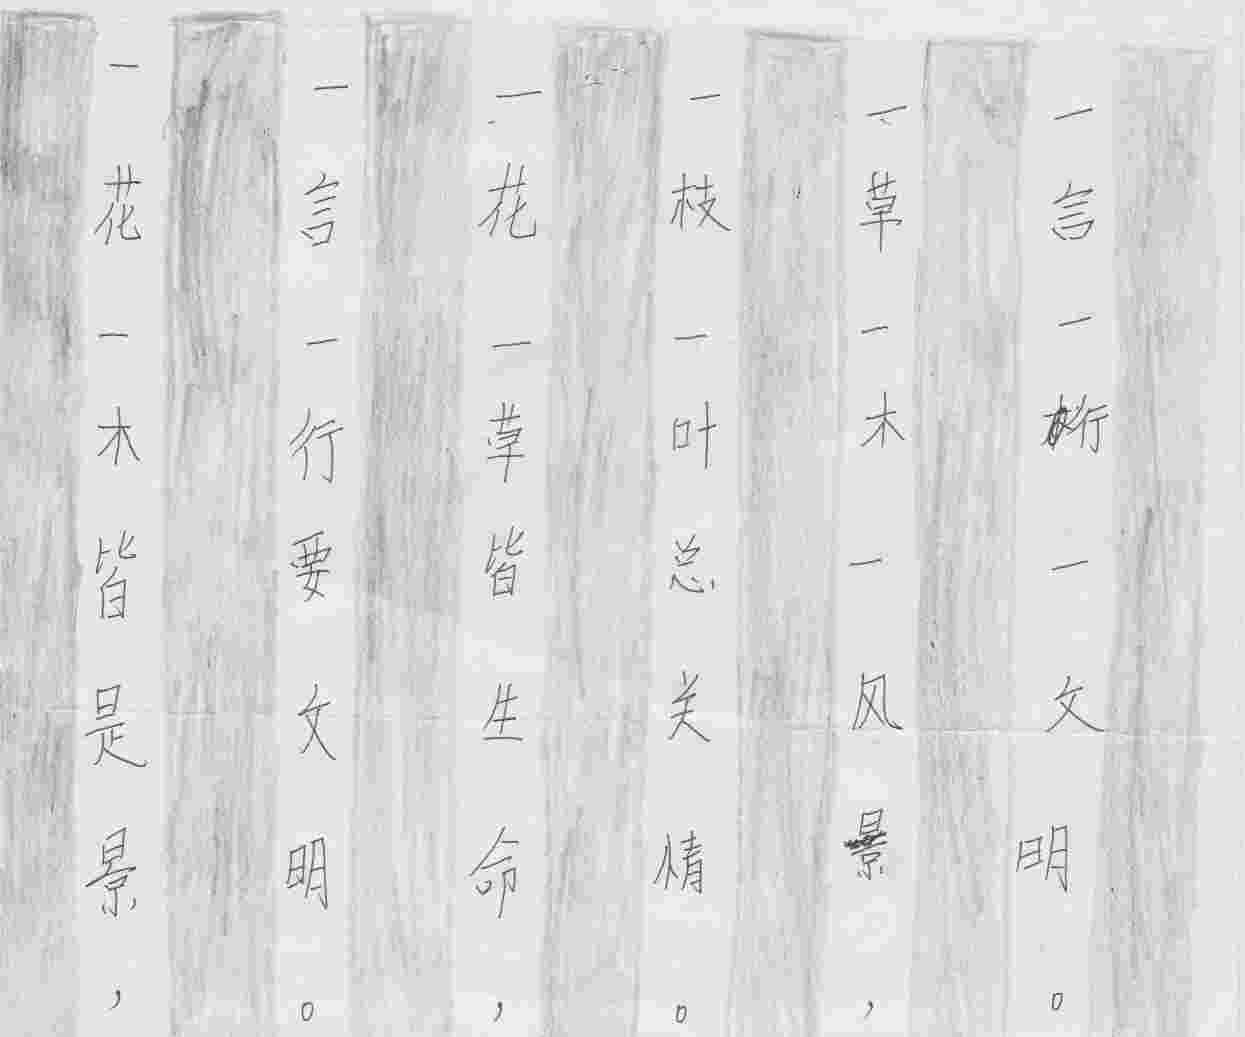 一花一木皆是景，
一言一行要文明。
一花一草皆生命，
一枝一叶总关情。
一草一木一风景，
一言一行一文明。